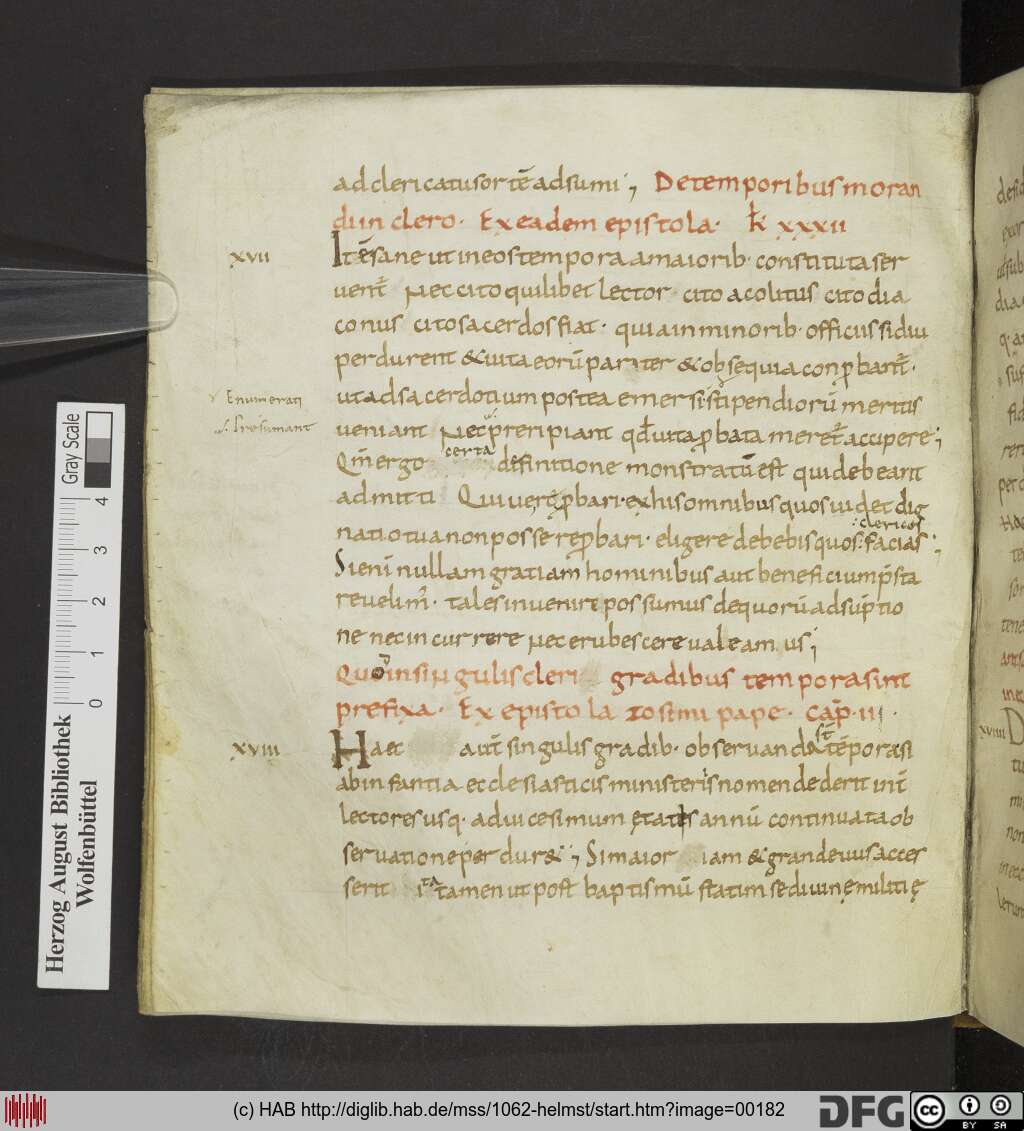 ad clericatusortē adsumi; De temporibus moran
di in clero. Ex eadem epistola. k̄ xxxii
xvii
Itē sane ut in eos tempora a maiorib· constituta ser
vent̄ Nec cito quilibet lector cito acolitus cito dia
conus cito sacerdos fiat· quia in minorib· officiis si diu
perdurent & uita eorū pariter & obsequia con ꝓbant̄·
Enumerati
ut ad sacerdotium postea emersi stipendiorū meritis
Presumant
ueniant Nec preripiant qđ uita ꝓbata meret̄ accipere;
certa
Qm̄ ergo definitione monstratū est qui debeant
admitti Qui uero ꝓbari· ex his omnibus quos uidet dig
clericos
natio tua non posse reꝓbari· eligere debebis quos facias;
Si eni nullam gratiam hominibus aut beneficium p̄sta
re uelim̄· tales inuenire possumus de quorū adsūptio
ne nec incurrere nec erubescere ualeam us;
Quo in singulis cleri gradibus tempora sint
prefixa· Ex epistola zosimi pape· cap̄·ii·
xviii
Haec aut̄ singulis gradib· obseruanda st̄ tēpora si
ab infantia ecclesiasticis ministeriis nomen dederit int̄
lectores usq· ad uicesimum ętatis annū continuata ob
seruatione perdur&; Si maior iam & grandeuus acces
serit ita tamen ut post baptismū statim se diuinę militię
xviiii
Gray Scale
4
3
2
1
0
Herzog August Bibliothek
Wolfenbüttel
(c) HAB http://diglib.hab.de/mss/1062-helmst/start.htm?image=00182
DFG
cc BY SA